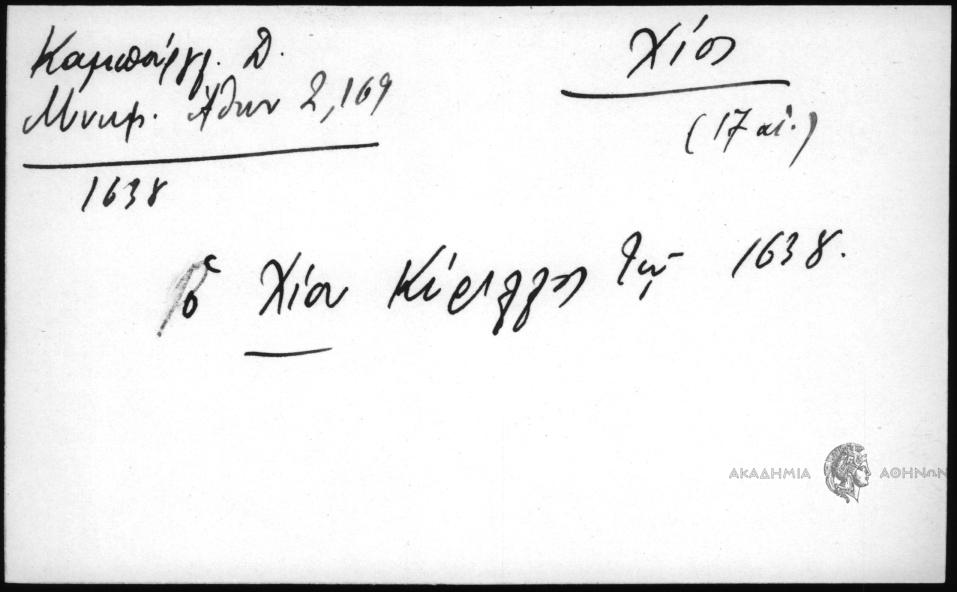 Καμπούργλ. Δ.
Μνημ. Ἀθην 2,169
1638
Χίος
(17 αἰ.)
ὁ Χίου Κύριλλος τῷ 1638.
ΑΚΑΔΗΜΙΑ ΑΘΗΝΩΝ